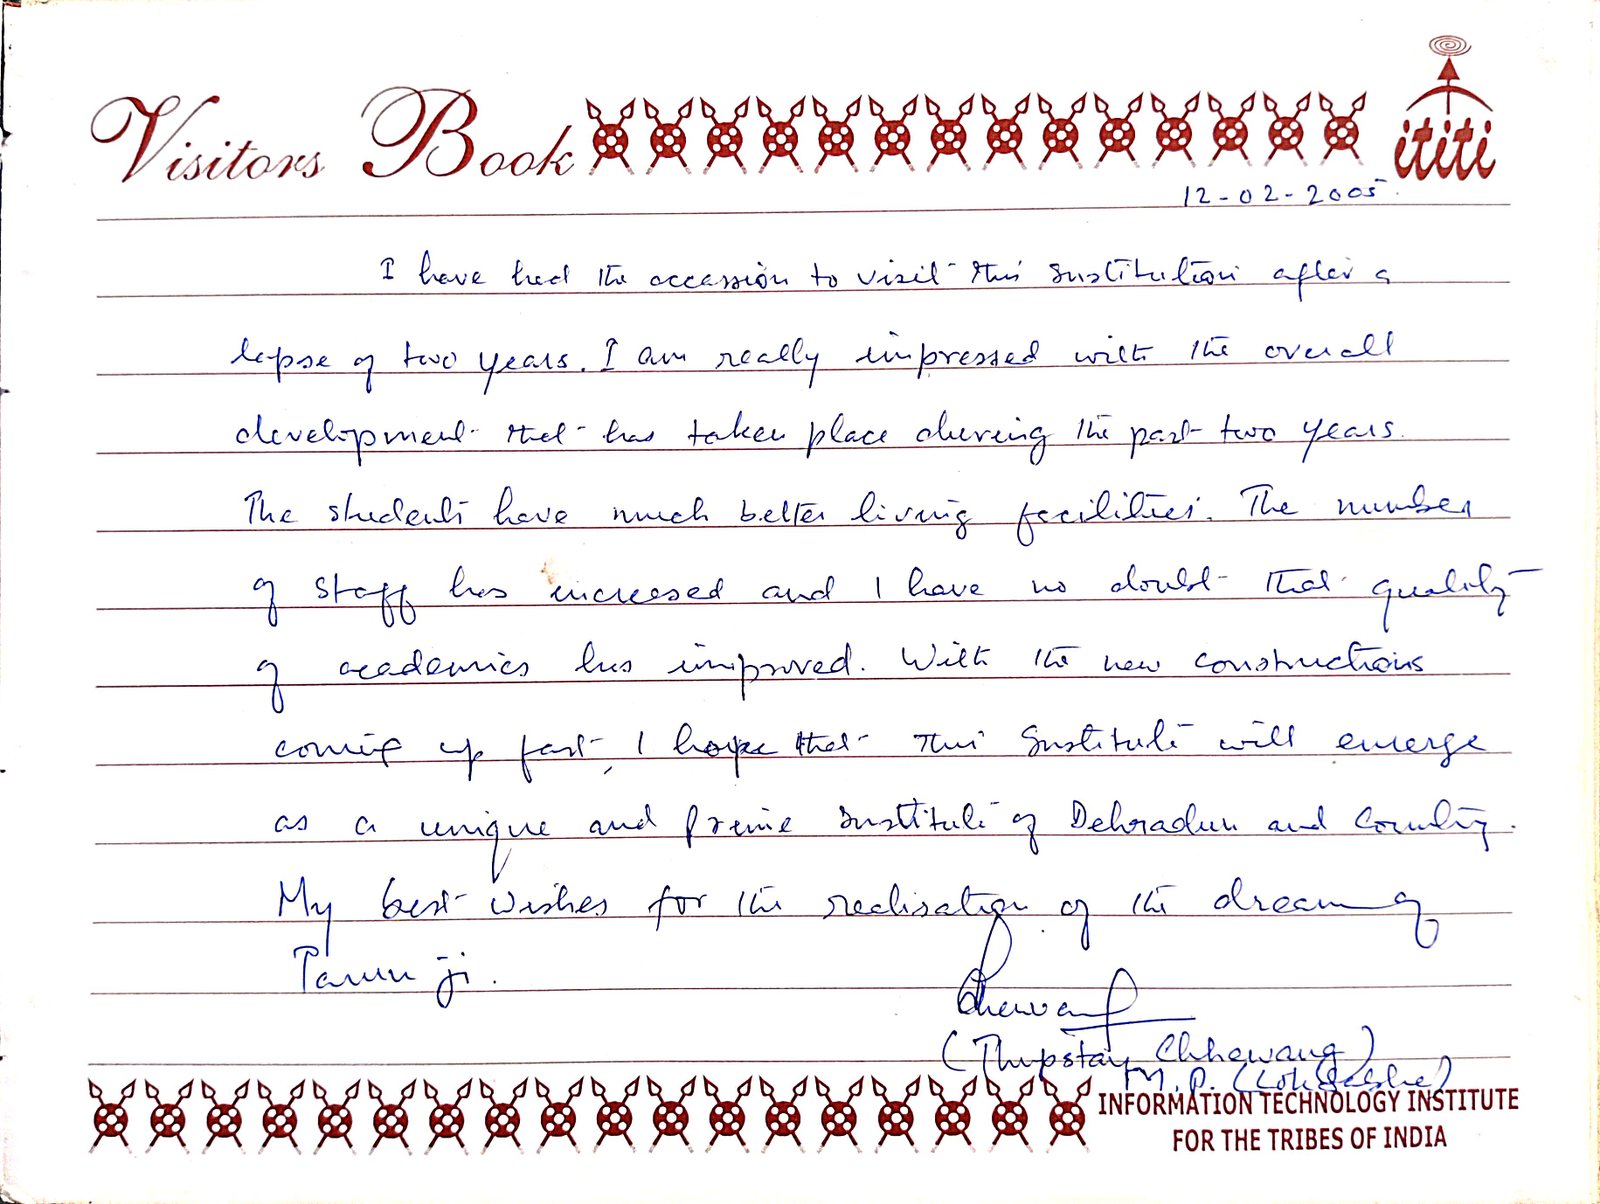 Visitors Book
ititi
12-02-2005
I have had the occassion to visit this institution after a
lapse of two years. I am really impressed with the overall
development that has taken place during the past two years.
The students have much better living facilities. The number
of staff has increased and I have no doubt that quality
of academics has improved. With the new constructions
coming up fast, I hope that this institute will emerge
as a unique and prime institute of Dehradun and Country.
My best wishes for the realisation of the dream of
Tarun ji.
Chewang
(Thupstan Chhewang)
M.P. (Lok Sabha)
INFORMATION TECHNOLOGY INSTITUTE
FOR THE TRIBES OF INDIA